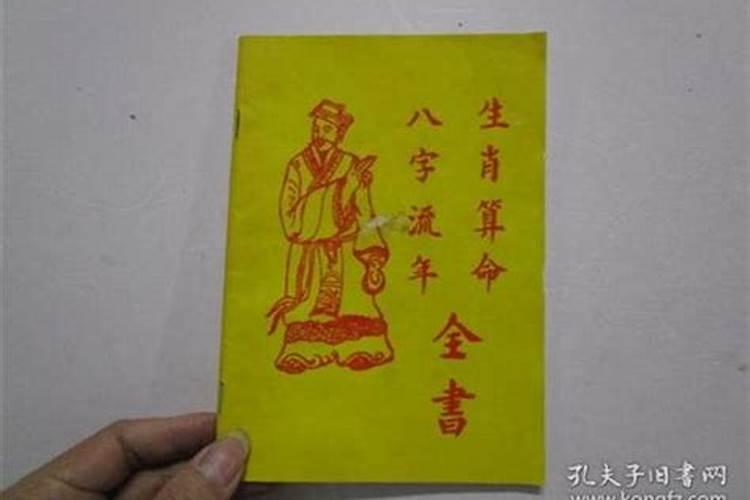 生肖算命
八字流年
全書
孔夫子旧书网
www.kongfz.com